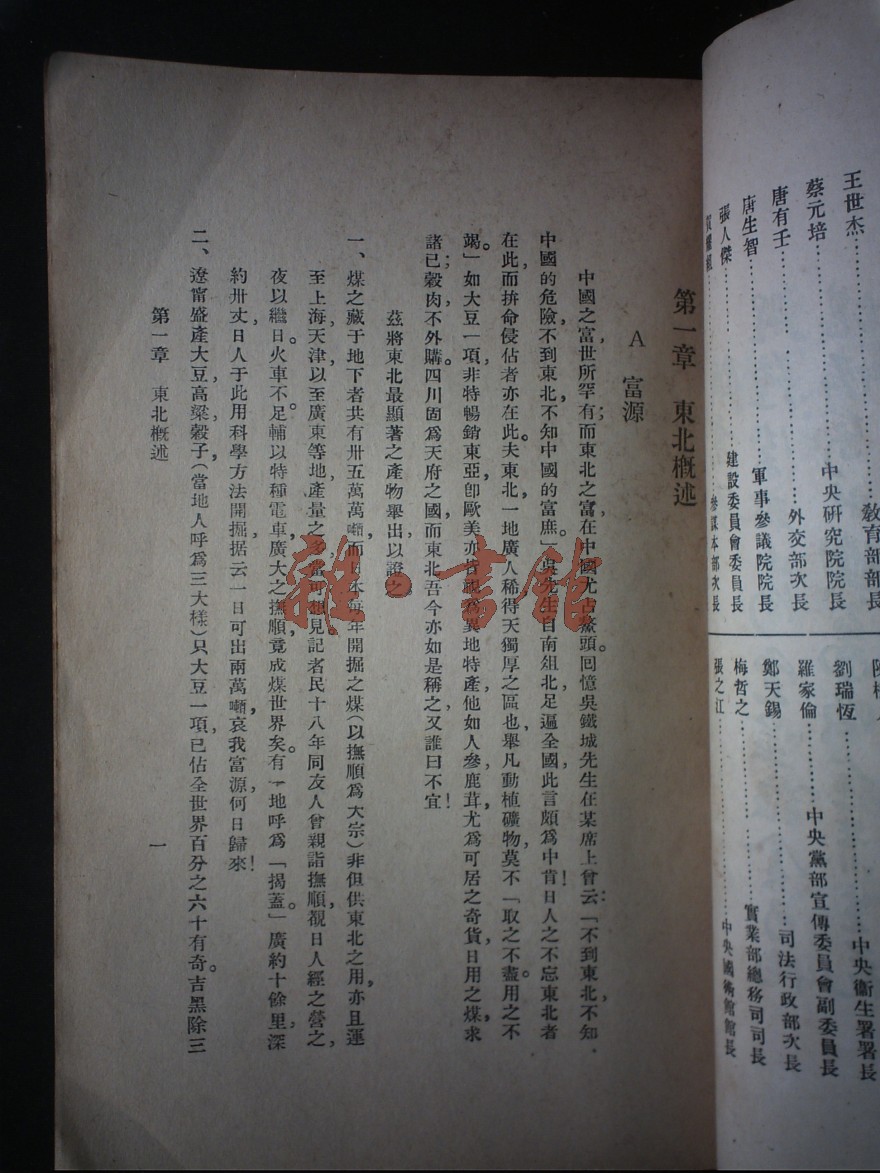 王世杰…………教育部部長
蔡元培…………中央研究院院長
唐有壬…………外交部次長
唐生智…………軍事參議院院長
張人傑…………建設委員會委員長
…………參謀本部次長
劉瑞恆…………中央衞生署署長
羅家倫…………中央黨部宣傳委員會副委員長
鄭天錫…………司法行政部次長
梅哲之…………實業部總務司司長
張之江…………中央國術館館長
第一章 東北概述
A 富源
中國之富，世所罕有；而東北之富，在中國尤占鰲頭。回憶吳鐵城先生在某席上曾云：「不到東北，不知
中國的危險，不到東北，不知中國的富庶。」吳先生自南徂北，足遍全國，此言頗爲中肯！日人之不忘東北者
在此，而拚命侵佔者亦在此。夫東北一地，廣人稀，得天獨厚之區也，舉凡動植礦物，莫不「取之不盡，用之不
竭。」如大豆一項，非特暢銷東亞，卽歐美亦皆視爲異地特產，他如人參鹿茸，尤爲可居之奇貨，日用之煤，求
諸已；穀肉不外購。四川固爲天府之國，而東北吾今亦如是稱之，又誰曰不宜！
茲將東北最顯著之產物，舉出以證之
一、煤之藏于地下者，共有卅五萬萬噸，而日本每年開掘之煤（以撫順爲大宗）非但供東北之用，亦且運
至上海天津，以至廣東等地，產量之多，當可想見。記者民十八年同友人曾親詣撫順，覩日人經之營之，
夜以繼日。火車不足，輔以特種電車，廣大之撫順，竟成煤世界矣。有一地呼爲「揭蓋」，廣約十餘里，深
約卅丈，日人于此用科學方法開掘，据云一日可出兩萬噸，哀我富源，何日歸來！
二、遼甯盛產大豆，高粱，穀子（當地人呼爲三大樣）只大豆一項，已佔全世界百分之六十有奇。吉黑除三
第一章 東北概述 一
雜·書館